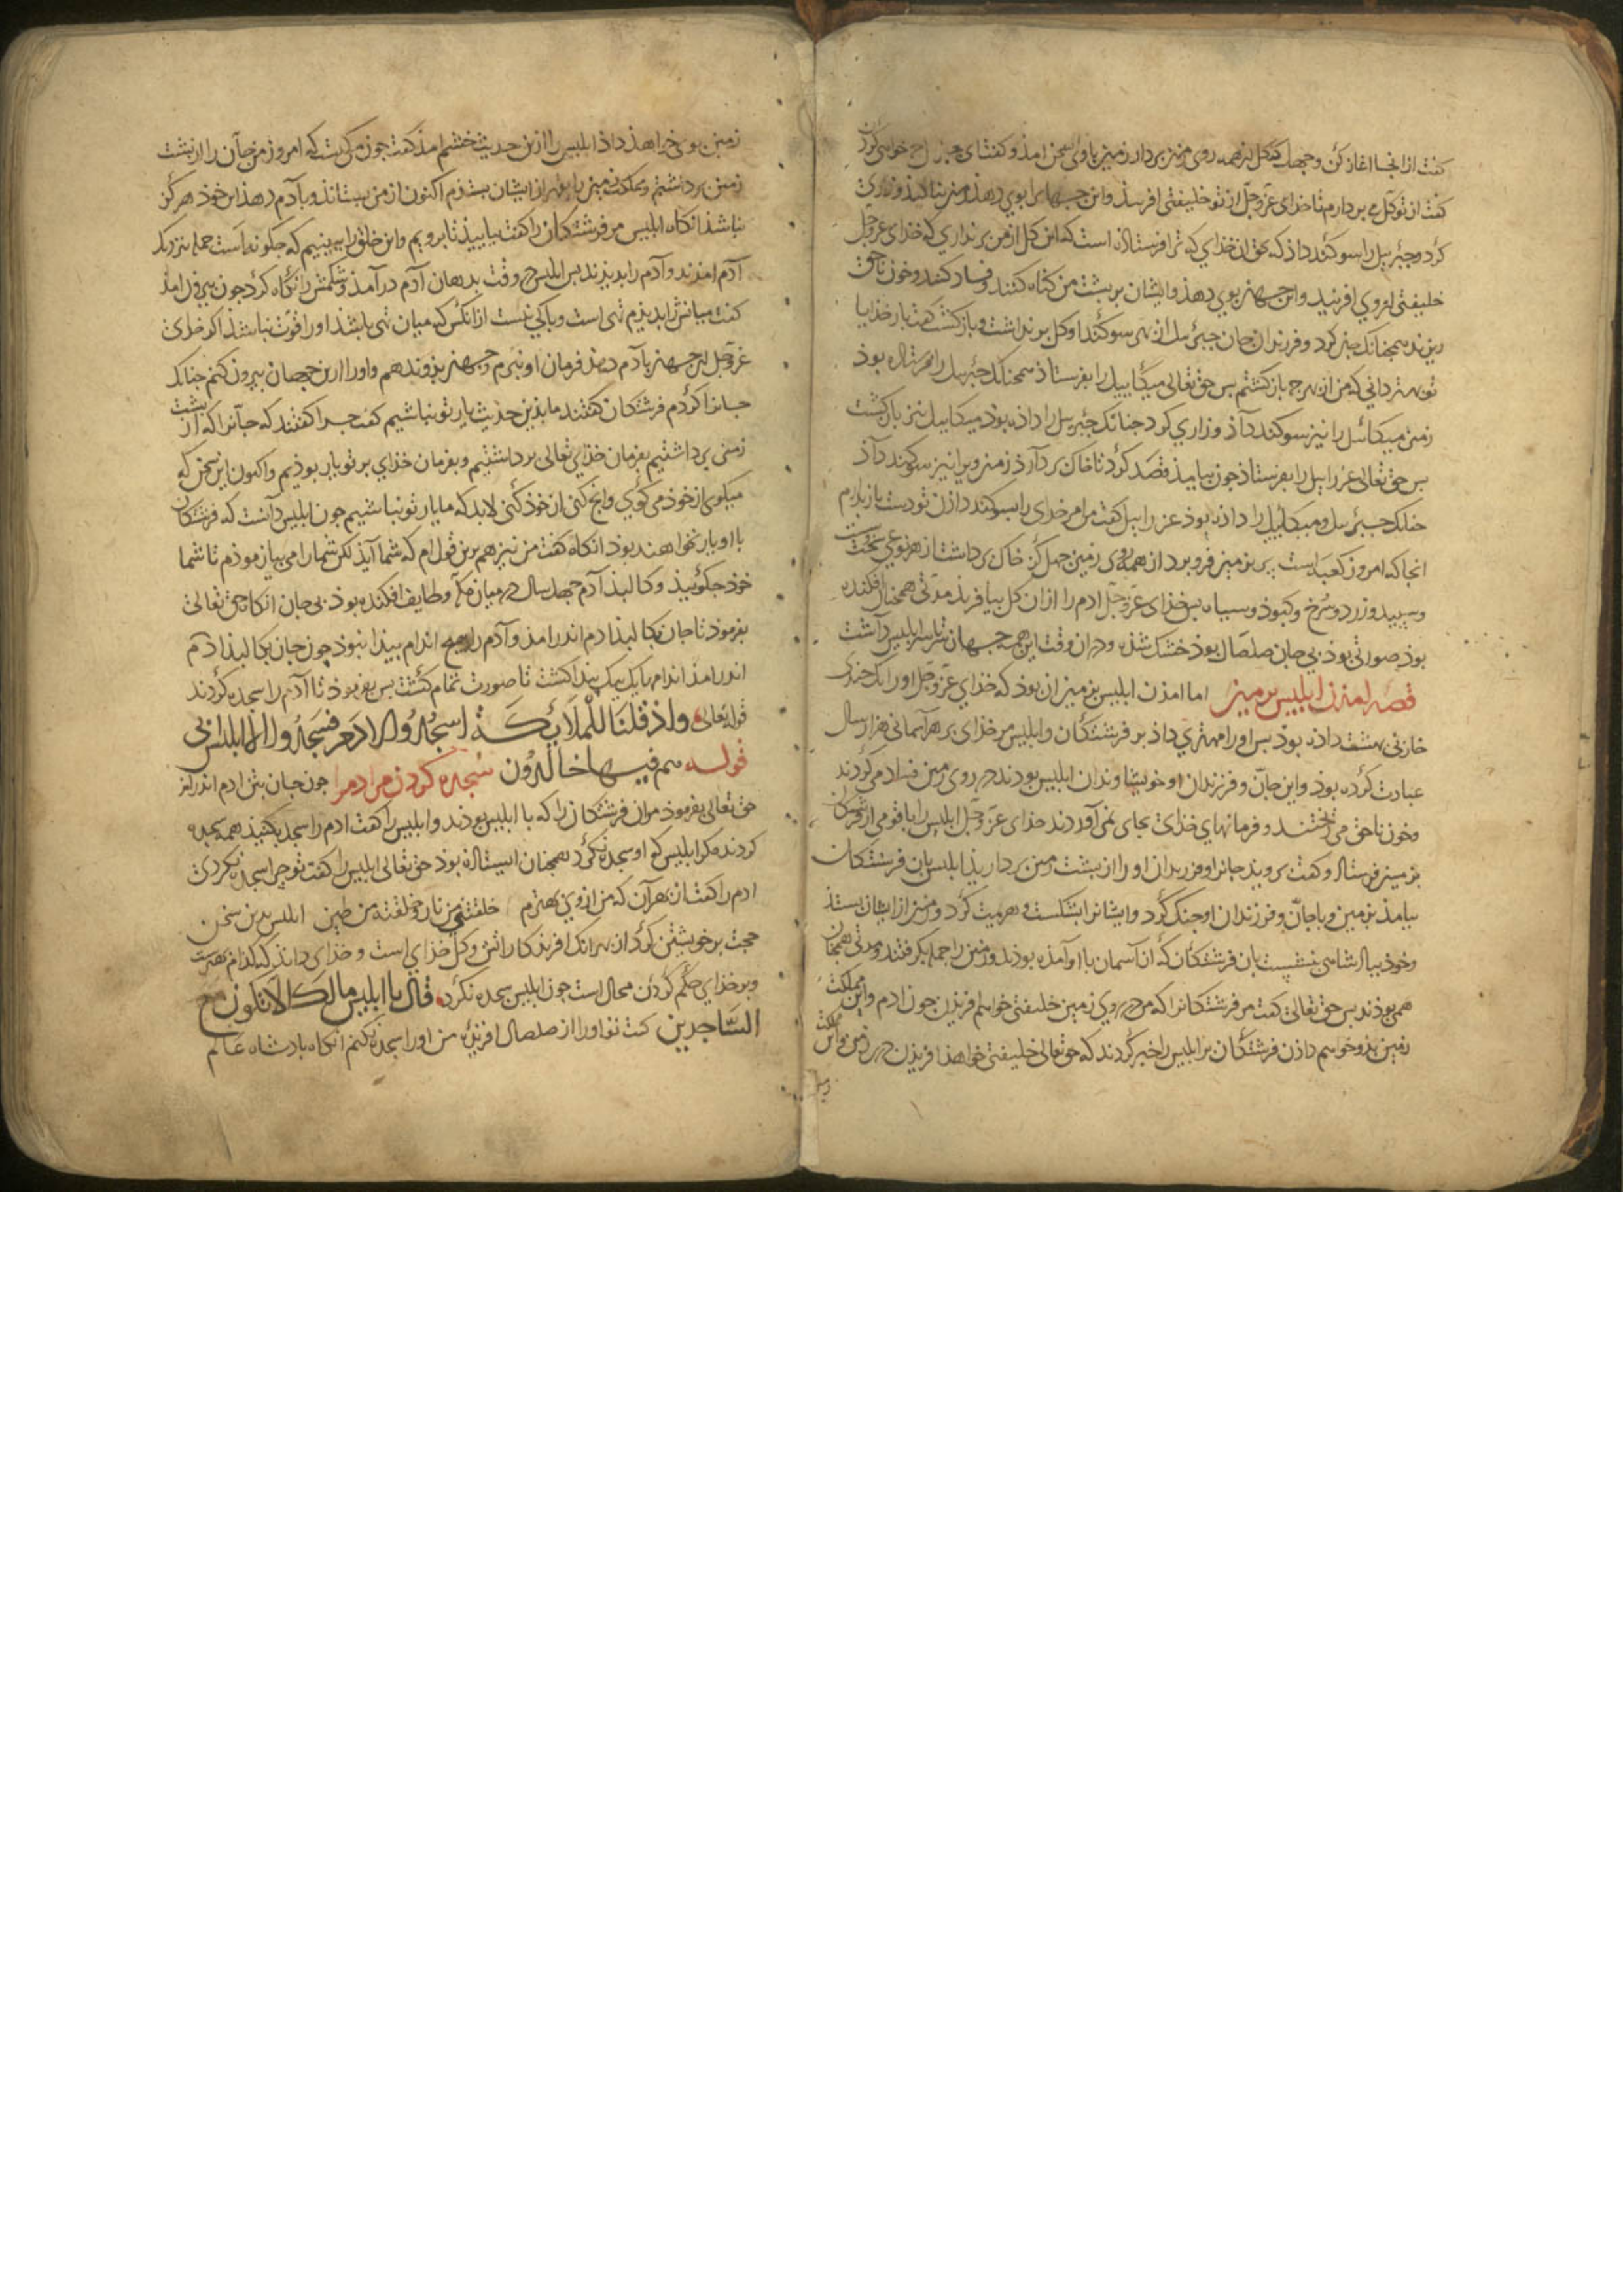 کفت از انجا اغاز کن وجهل کز کل از همه روی زمین بردار زمین باوی بسخن امذ وکفت ای جبرئیل چه خواهی کردن
کفت از تو کل می بردارم تا خدای عزّوجلّ از تو خلیفتی افریند واین جهان را بوی دهد زمین بنالید وزاری
کرد وجبرئیل را سوکند داذ که بحق ان خدای که ترا فرستاذه است که این کل از من برنداری که خدای عزوجل
خلیفتی از وی افریند واین جهان بوی دهذ وایشان بر پشت من کناه کنند وفساد کنند وخون ناحق
ریزند همجنانک جان کرد وفرزندان جان جبرئیل از بهر سوکند او کل برنداشت وبازکشت کفت بار خذایا
تو بهتر دانی که من از بهر چه بازکشتم بس حق تعالی میکاییل را بفرستاذ همجنانک جبرئیل را فرستاذه بوذ
زمین میکائیل را نیز سوکند داذ وزاری کرد جنانک جبرئیل را داذه بوذ میکاییل نیز بازکشت
بس حق تعالی عزراییل را بفرستاذ جون بیامذ قصد کرد تا خاک بردارذ زمین ویرا نیز سوکند داذ
جنانک جبرئیل ومیکاییل را داذه بوذ عزراییل کفت من امر خدای را بسوکند داذن تو دست بازندارم
انجا که امروز کعبه است بر زمین فرو برد از همه روی زمین جهل کز خاک برداشت از هر نوعی سخت
وسپید وزرد وسرخ وکبوذ وسیاه بس خدای عزّوجلّ ادم را ازان کل بیافریذ مدّتی همجنان افکنده
بوذ صورتی بوذ بی جان صلصال بوذ خشک شذه ودران وقت این همه جهان سراسر ابلیس داشت
قصه امدن ابلیس بزمین اما امذن ابلیس بزمین ان بوذ که خدای عزّوجلّ اورا یک چندی
خازنی بهشت داذه بوذ بس اورا مهتری داذ بر فرشتکان وابلیس مر خدای بر هر آسمانی هزار سال
عبادت کرده بوذ واین جانّ وفرزندان او خویشاوندان ابلیس بودند در روی زمین فساد می کردند
وخون ناحق می ریختند وفرمانهای خذای بجای نمی آوردند خدای عزّوجلّ ابلیس را با قومی از فرشتکان
بزمین فرستاذ وکفت بروید جانرا وفرزندان اورا از پشت زمین برداریذ ابلیس بان فرشتکان
بیامذ بزمین وبا جانّ وفرزندان او جنک کرد وایشانرا بشکست وهزیمت کرد وزمین از ایشان بستد
وخوذ بپاذشاهی بنشست بان فرشتکان که از آسمان با او آمذه بوذند وزمین را جمله بکرفتند ومدتی همجنان
همی بوذند بس حق تعالی کفت مر فرشتکانرا که من در روی زمین خلیفتی خواهم افریذن جون ادم واین مملکت
زمین بذو خواهم داذن فرشتکان مر ابلیس را خبر کردند که حق تعالی خلیفتی خواهذ افریذن در زمین واین مملکت
زمین بوی خواهذ داذ ابلیس را ازین حدیث خشم امذ کفت جون من کیست که امروز من جان را از پشت
زمین برداشتم ومملکت زمین را بقهر از ایشان بستذم اکنون از من بستاند وبآدم دهذ این خوذ هرکز
نباشذ انکاه ابلیس مر فرشتکان را کفت بیاییذ تا برویم واین خلق را ببینیم که جکونه است جمله بنزدیک
آدم امذند وآدم را بدیذند بس ابلیس در وقت بدهان آدم درآمذ وشکمش را نکاه کرد جون بیرون امذ
کفت میانش را بدیذم تهی است وباکی نیست ازانکس که میان تهی باشذ اورا قوّت نباشذ اکر خدای
عزّوجلّ این جهان بآدم دهد فرمان او نبرم وجهان بذو ندهم واورا ازین جهان بیرون کنم جنانک
جانرا کردم فرشتکان کفتند ما بذین حدیث یار تو نباشیم کفت چرا کفتند که جآنرا که از پشت
زمین برداشتیم بفرمان خذای تعالی برداشتیم وبفرمان خذای بر تو یار بوذیم واکنون این سخن که
میکوی از خوذ می کوی وانچ کنی از خوذ کنی لابد که ما یار تو نباشیم جون ابلیس دانست که فرشتکان
با او یار نخواهند بوذ انکاه کفت من نیز هم برین قول ام که شما ایذ لکن شمارا می بیازموذم تا شما
خوذ جکوییذ وکالبذ آدم جهل سال در میان مکّه وطایف افکنده بوذ بی جان انکاه حق تعالی
بفرموذ تا جان بکالبذ ادم اندر امذ وآدم را هیچ اندام پیذا نبوذ چون جان بکالبذ ادم
اندر امذ اندامها یک بیک پیدا کشت تا صورت تمام کشت بس بفرموذ تا آدم را سجده کردند
قوله تعالی واذ قلنا للملائکة اسجدوا لادم فسجدوا الا ابلیس ابی
قوله هم فیها خالدون سجده کردن مر ادم را جون جان بتن ادم اندر امذ
حق تعالی بفرموذ مران فرشتکان را که با ابلیس بوذند وابلیس را کفت ادم را سجده کنیذ همه سجده
کردند مکر ابلیس که او سجده نکرد همجنان ایستاذه بوذ حق تعالی ابلیس را کفت تو چرا سجده نکردی
ادم را کفت از بهر آن که من ازوی بهترم خلقتنی من نار وخلقته من طین ابلیس بدین سخن
حجت بر خویشتن کرد از بهر انک افریذکار اتش وکل خذای است وخدای داند که کدام بهترست
وبر خذای حکم کردن محال است جون ابلیس سجده نکرد قال یا ابلیس مالک الا تکون مع
الساجدین کفت تو اورا از صلصال افریذی من اورا سجده نکنم انکاه بادشاه عالم